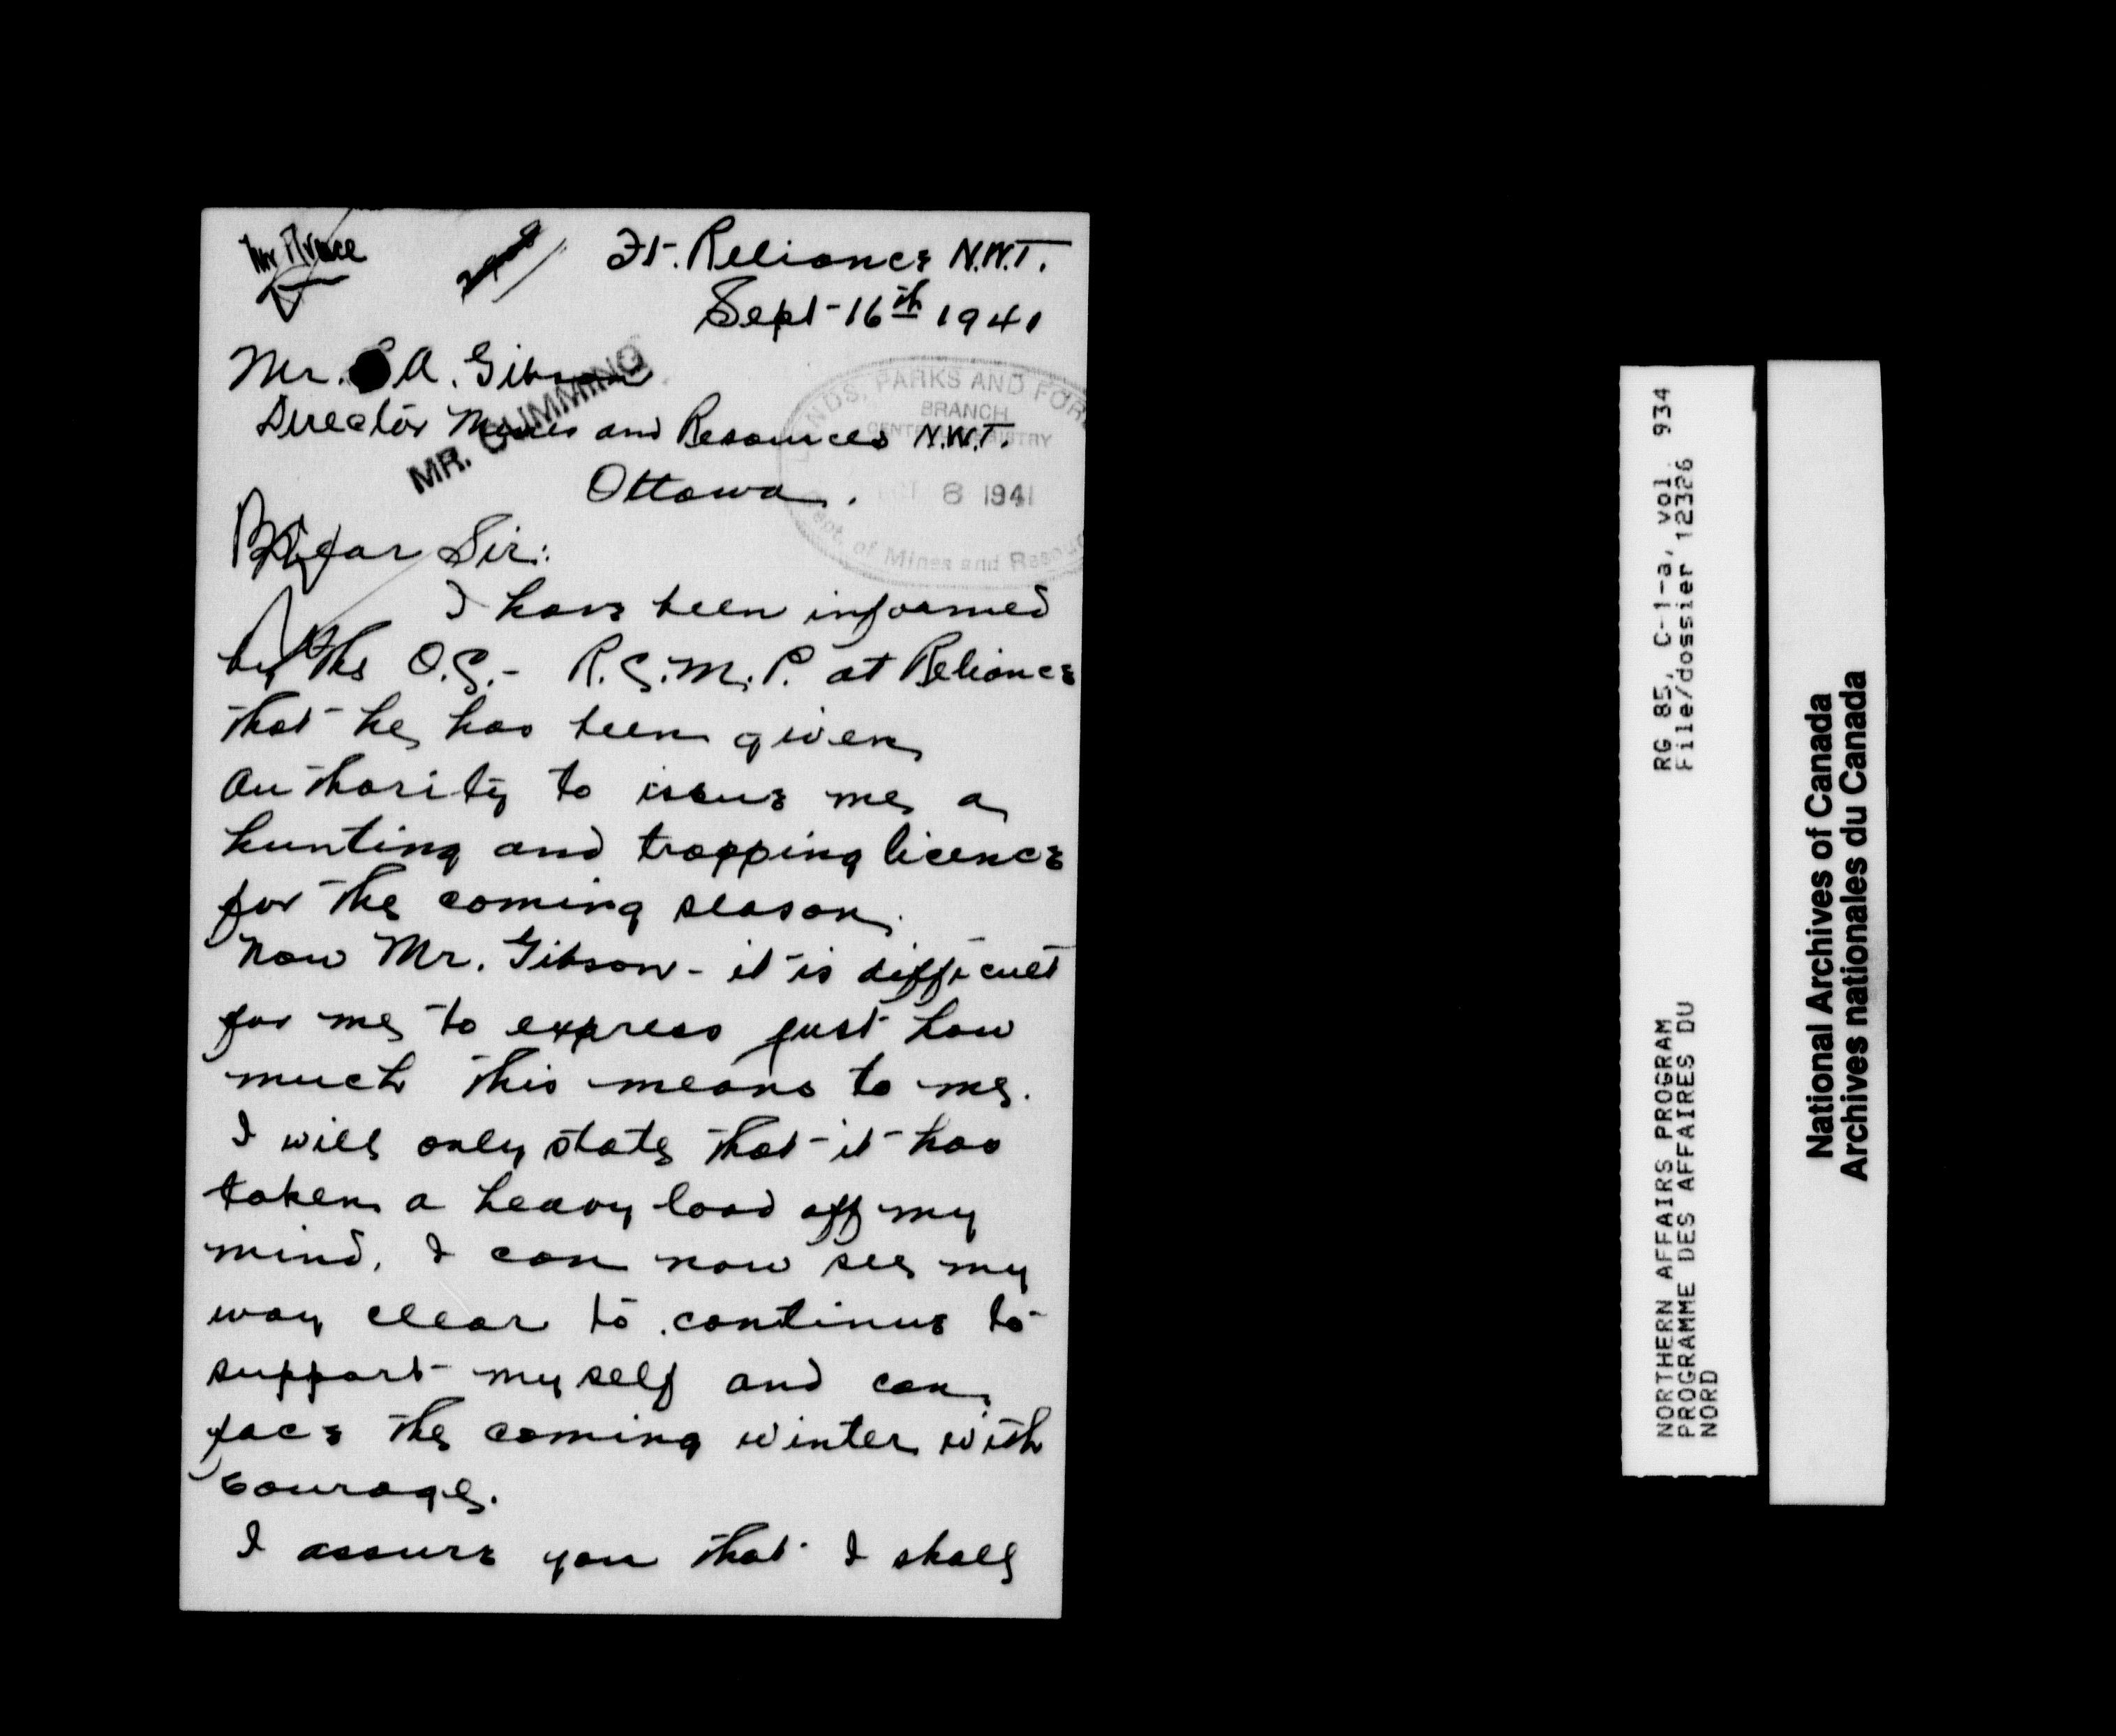 Ft. Reliance N.W.T.
Sept-16th 1941
Mr. A. Gibson
Director Mines and Resources N.W.T.
Ottawa.
MR. CUMMING
LANDS, PARKS AND FOR
BRANCH
CENTRAL REGISTRY
OCT 8 1941
Dept. of Mines and Resourc
Dear Sir:
I have been informed
by the O.C.- R.C.M.P. at Reliance
that he has been given
authority to issue me a
hunting and trapping licence
for the coming season.
Now Mr. Gibson - it is difficult
for me to express just how
much this means to me.
I will only state that it has
taken a heavy load off my
mind. I can now see my
way clear to continue to
support myself and can
face the coming winter with
courage.
I assure you that I shall
RG 85, C-1-a, vol. 934
File/dossier 12326
NORTHERN AFFAIRS PROGRAM
PROGRAMME DES AFFAIRES DU
NORD
National Archives of Canada
Archives nationales du Canada